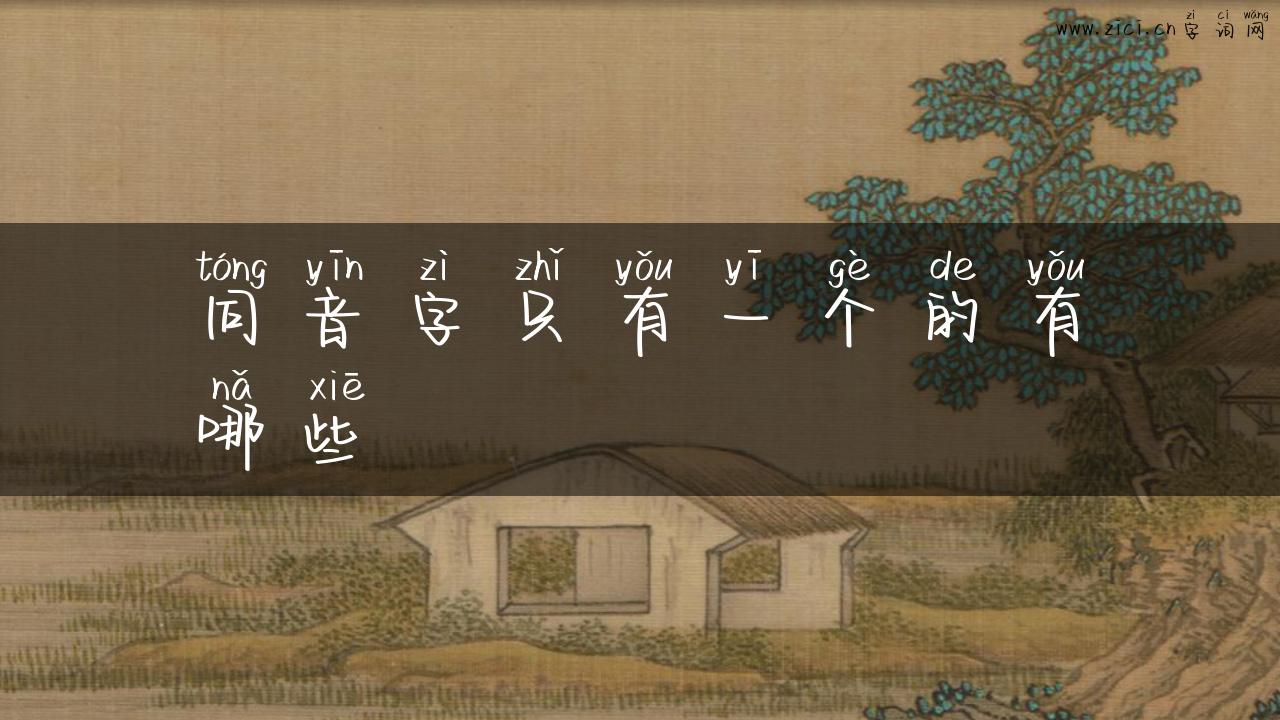 zì cí wǎng
www.zici.cn 字 词 网
tóng yīn zì zhǐ yǒu yī gè de yǒu
同 音 字 只 有 一 个 的 有
nǎ xiē
哪 些